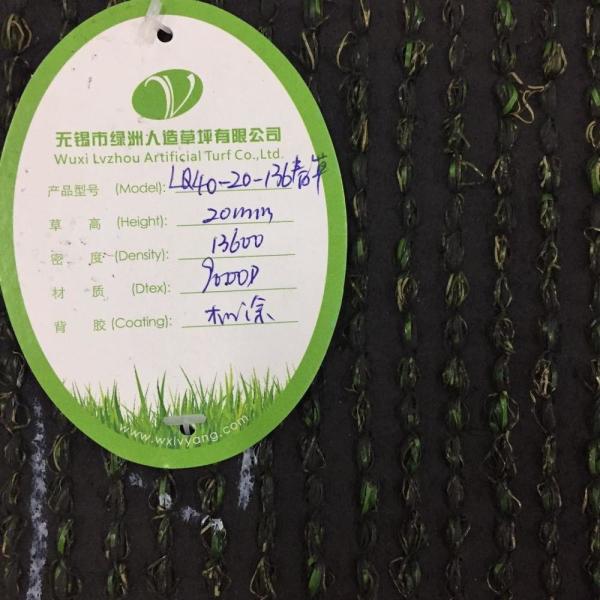 无锡市绿洲人造草坪有限公司
Wuxi Lvzhou Artificial Turf Co.,Ltd.
产品型号 (Model): LQ40-20-136春草
草 高 (Height): 20mm
密 度 (Density): 13600
材 质 (Dtex): 9000D
背 胶 (Coating): 机涂
www.wxlvyang.com